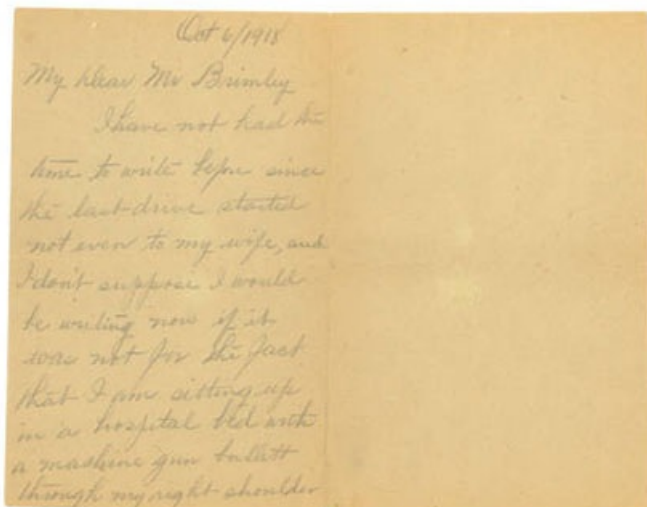 Oct 6/1918
My Dear Mr Brimley
I have not had the
time to write before since
the last drive started
not even to my wife, and
I don't suppose I would
be writing now if it
was not for the fact
that I am sitting up
in a hospital bed with
a mashine gun bulett
through my right shoulder